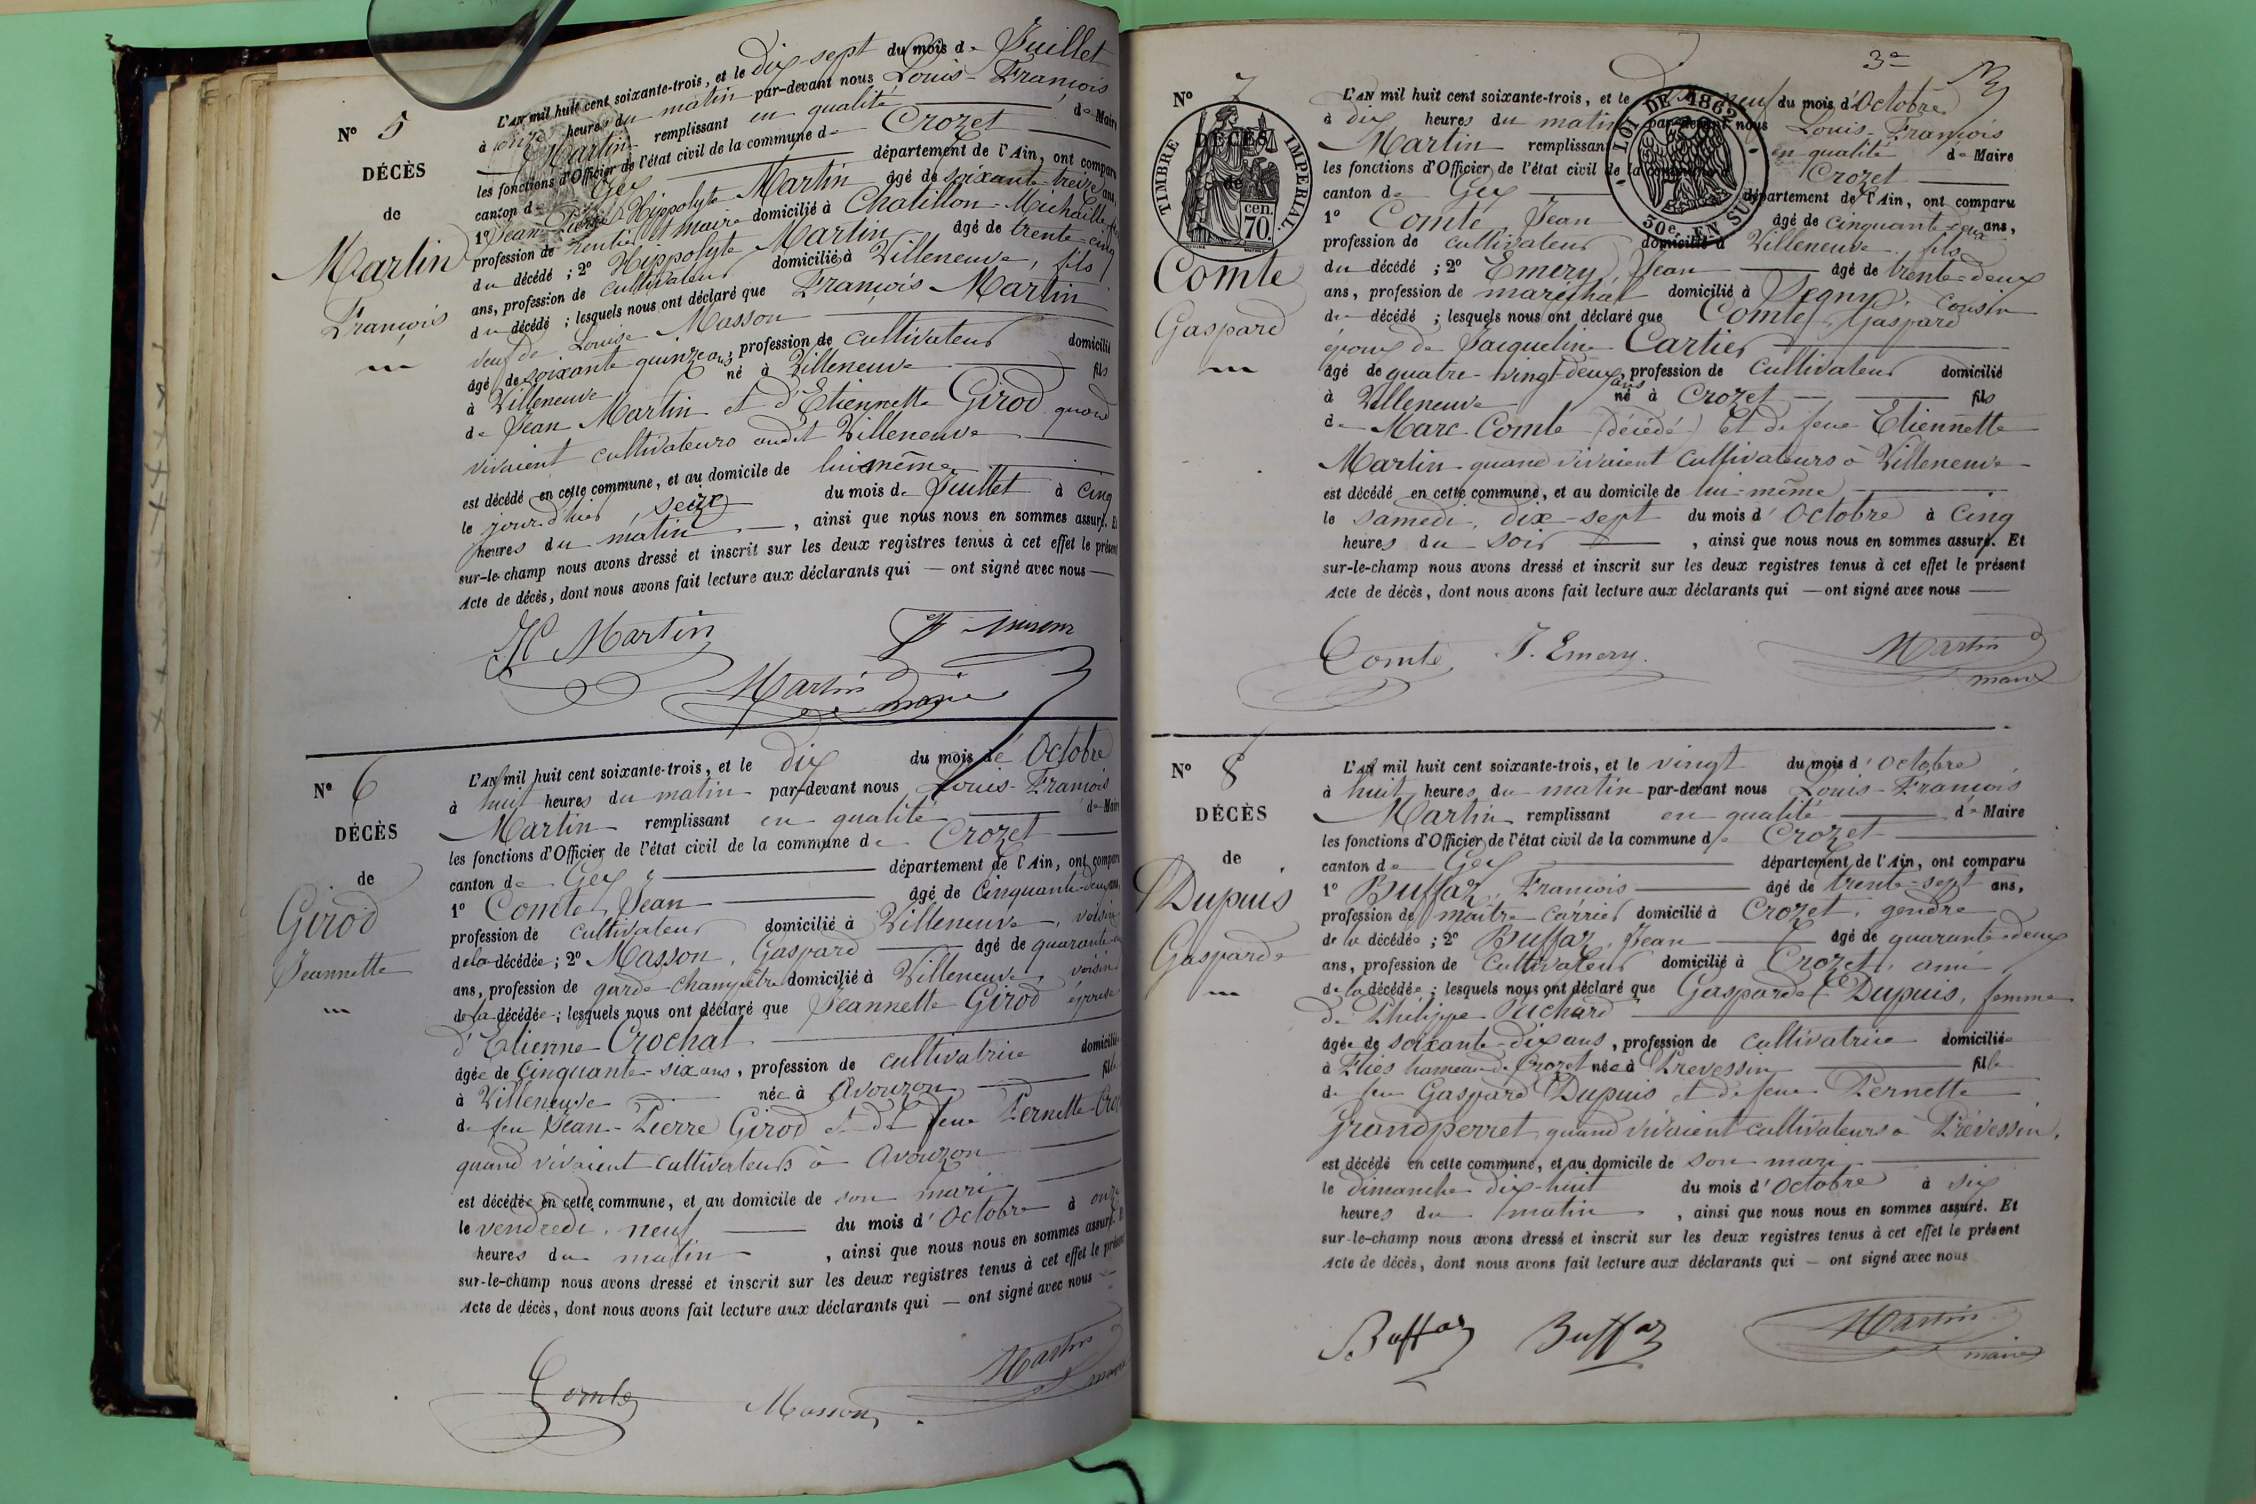 N° 5
DÉCÈS
de
Martin
François
L'AN mil huit cent soixante-trois, et le dix-sept du mois de Juillet
à onze heures du matin par-devant nous Louis-François
Martin remplissant en qualité de Maire
les fonctions d'Officier de l'état civil de la commune de Crozet
canton de Gex département de l'Ain, ont comparu
1° Jean-Pierre Hippolyte Martin âgé de soixante-treize ans,
profession de rentier et maire domicilié à Chatillon-Michaille
du décédé ; 2° Hippolyte Martin âgé de trente-cinq
ans, profession de cultivateur domicilié à Villeneuve, fils
du décédé ; lesquels nous ont déclaré que François Martin
veuf de Louise Masson
âgé de soixante quinze ans, profession de cultivateur domicilié
à Villeneuve né à Villeneuve fils
de Jean Martin et d'Etiennette Girod quand
vivaient cultivateurs audit Villeneuve
est décédé en cette commune, et au domicile de lui même
le jour d'hier, seize du mois de Juillet à cinq
heures du matin, ainsi que nous nous en sommes assuré. Et
sur-le-champ nous avons dressé et inscrit sur les deux registres tenus à cet effet le présent
Acte de décès, dont nous avons fait lecture aux déclarants qui — ont signé avec nous —
H Martin
Martin maire
N° 6
DÉCÈS
de
Girod
Jeannette
L'AN mil huit cent soixante-trois, et le dix du mois de Octobre
à huit heures du matin par-devant nous Louis-François
Martin remplissant en qualité de Maire
les fonctions d'Officier de l'état civil de la commune de Crozet
canton de Gex département de l'Ain, ont comparu
1° Comte, Jean âgé de cinquante-deux ans,
profession de cultivateur domicilié à Villeneuve, voisin
de la décédée ; 2° Masson, Gaspard âgé de quarante
ans, profession de garde-champêtre domicilié à Villeneuve, voisin
de la décédée ; lesquels nous ont déclaré que Jeannette Girod épouse
d'Etienne Crochat
âgée de cinquante-six ans, profession de cultivatrice domiciliée
à Villeneuve née à Avouzon fille
de feu Jean-Pierre Girod et de feue Pernette
quand vivaient cultivateurs à Avouzon
est décédée en cette commune, et au domicile de son mari
le vendredi, neuf du mois d'Octobre à onze
heures du matin, ainsi que nous nous en sommes assuré. Et
sur-le-champ nous avons dressé et inscrit sur les deux registres tenus à cet effet le présent
Acte de décès, dont nous avons fait lecture aux déclarants qui — ont signé avec nous —
Comte Masson Martin maire
3e
N° 7
DÉCÈS
de
TIMBRE IMPERIAL.
70 cen.
LOI DE 1862
30e. EN SUS
Comte
Gaspard
L'AN mil huit cent soixante-trois, et le neuf du mois d'Octobre
à dix heures du matin par-devant nous Louis-François
Martin remplissant en qualité de Maire
les fonctions d'Officier de l'état civil de la commune de Crozet
canton de Gex département de l'Ain, ont comparu
1° Comte Jean âgé de cinquante-deux ans,
profession de cultivateur domicilié à Villeneuve, fils
du décédé ; 2° Emery, Jean âgé de trente-deux
ans, profession de maréchal domicilié à Segny, cousin
du décédé ; lesquels nous ont déclaré que Comte, Gaspard
époux de Jacqueline Cartier
âgé de quatre-vingt-deux ans, profession de cultivateur domicilié
à Villeneuve né à Crozet fils
de Marc Comte (décédé) et de feue Etiennette
Martin quand vivaient cultivateurs à Villeneuve
est décédé en cette commune, et au domicile de lui-même
le samedi, dix-sept du mois d'Octobre à cinq
heures du soir, ainsi que nous nous en sommes assuré. Et
sur-le-champ nous avons dressé et inscrit sur les deux registres tenus à cet effet le présent
Acte de décès, dont nous avons fait lecture aux déclarants qui — ont signé avec nous —
Comte J. Emery. Martin maire
N° 8
DÉCÈS
de
Dupuis
Gasparde
L'AN mil huit cent soixante-trois, et le vingt du mois d'Octobre
à huit heures du matin par-devant nous Louis-François
Martin remplissant en qualité de Maire
les fonctions d'Officier de l'état civil de la commune de Crozet
canton de Gex département de l'Ain, ont comparu
1° Buffaz, François âgé de trente-sept ans,
profession de maître carrier domicilié à Crozet, gendre
de la décédée ; 2° Buffaz, Jean âgé de quarante-deux
ans, profession de cultivateur domicilié à Crozet, ami
de la décédée ; lesquels nous ont déclaré que Gasparde Dupuis, femme
de Philippe Suchard
âgée de soixante-dix ans, profession de cultivatrice domiciliée
à Flies hameau de Crozet née à Prevessin fille
de feu Gaspard Dupuis et de feue Pernette
Grandperret, quand vivaient cultivateurs à Prévessin,
est décédé en cette commune, et au domicile de son mari
le dimanche dix-huit du mois d'Octobre à six
heures du matin, ainsi que nous nous en sommes assuré. Et
sur-le-champ nous avons dressé et inscrit sur les deux registres tenus à cet effet le présent
Acte de décès, dont nous avons fait lecture aux déclarants qui — ont signé avec nous
Buffaz Buffaz Martin maire